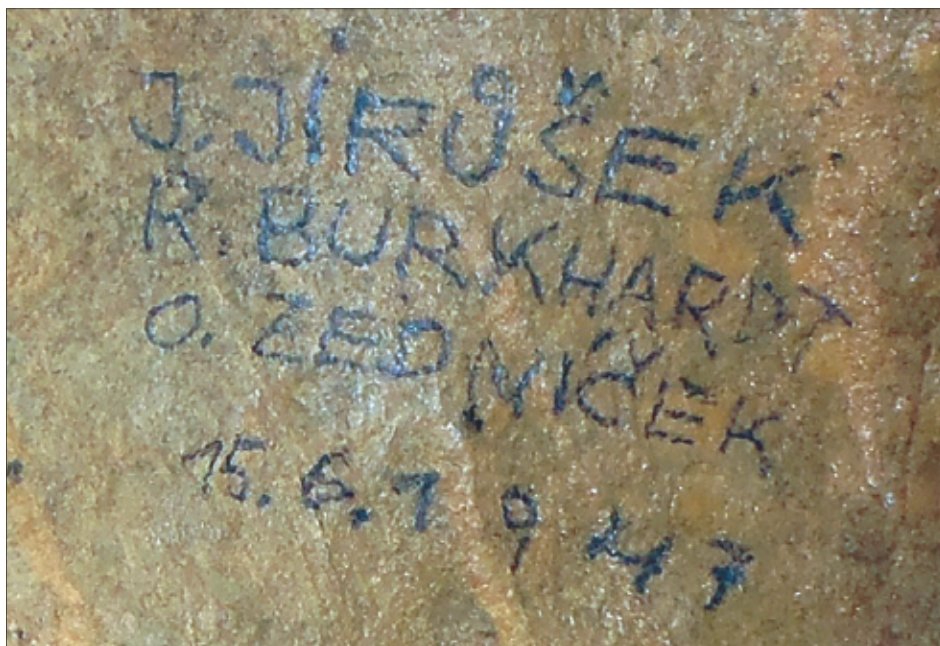 J. JÍRŮŠEK
R. BURKHARDT
O. ZEDNÍČEK
15. 6. 1947